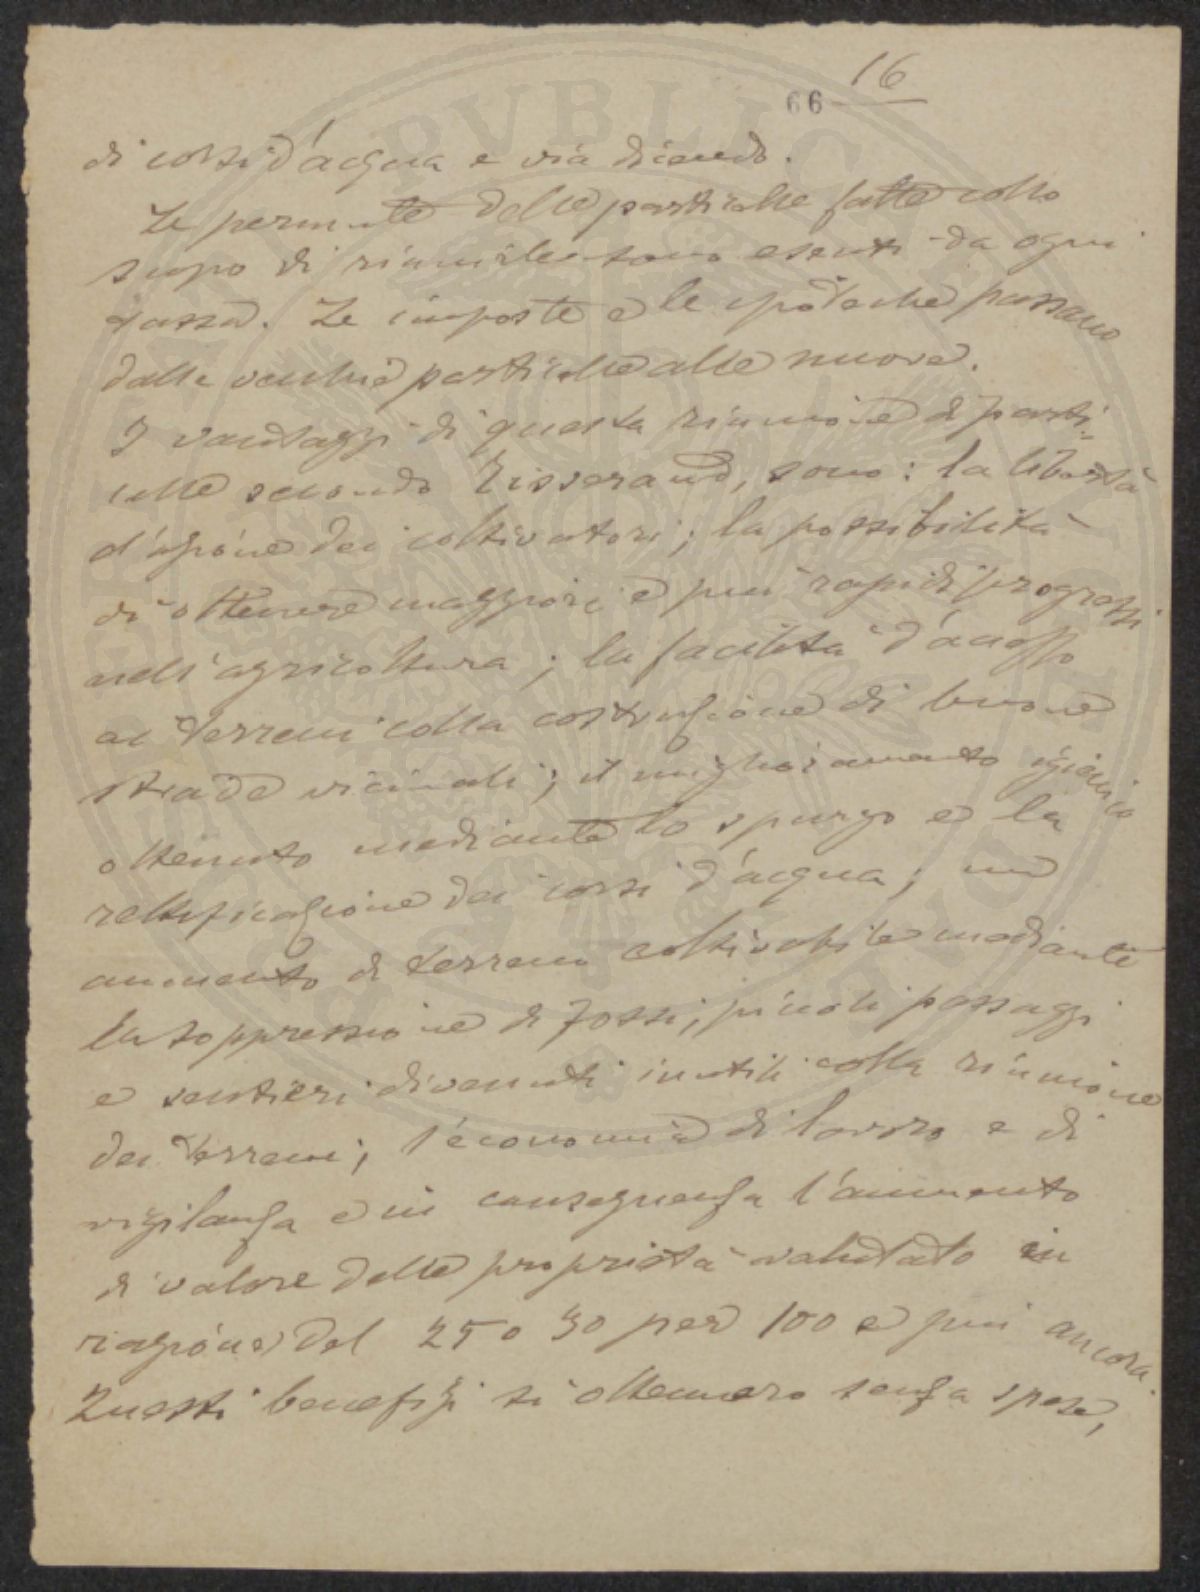 16
66
di corsi d'acqua e via dicendo.
Le permute delle particelle fatte collo
scopo di riunirle sono esenti da ogni
tassa. Le imposte e le ipoteche passano
dalle vecchie particelle alle nuove.
I vantaggi di questa riunione di parti-
celle secondo Tisserand, sono: la libertà
d'azione dei coltivatori; la possibilità
di ottenere maggiori e più rapidi progressi
nell'agricoltura; la facilità d'accesso
ai terreni colla costruzione di buone
strade vicinali; il miglioramento igienico
ottenuto mediante lo spurgo e la
rettificazione dei corsi d'acqua; un
aumento di terreno coltivabile mediante
la soppressione di fossi, piccoli passaggi
e sentieri divenuti inutili colla riunione
dei terreni; l'economia di lavoro e di
vigilanza e in conseguenza l'aumento
di valore delle proprietà valutato in
ragione del 25 o 30 per 100 e più ancora.
Questi benefizi si ottennero senza spese,
PVBLICA